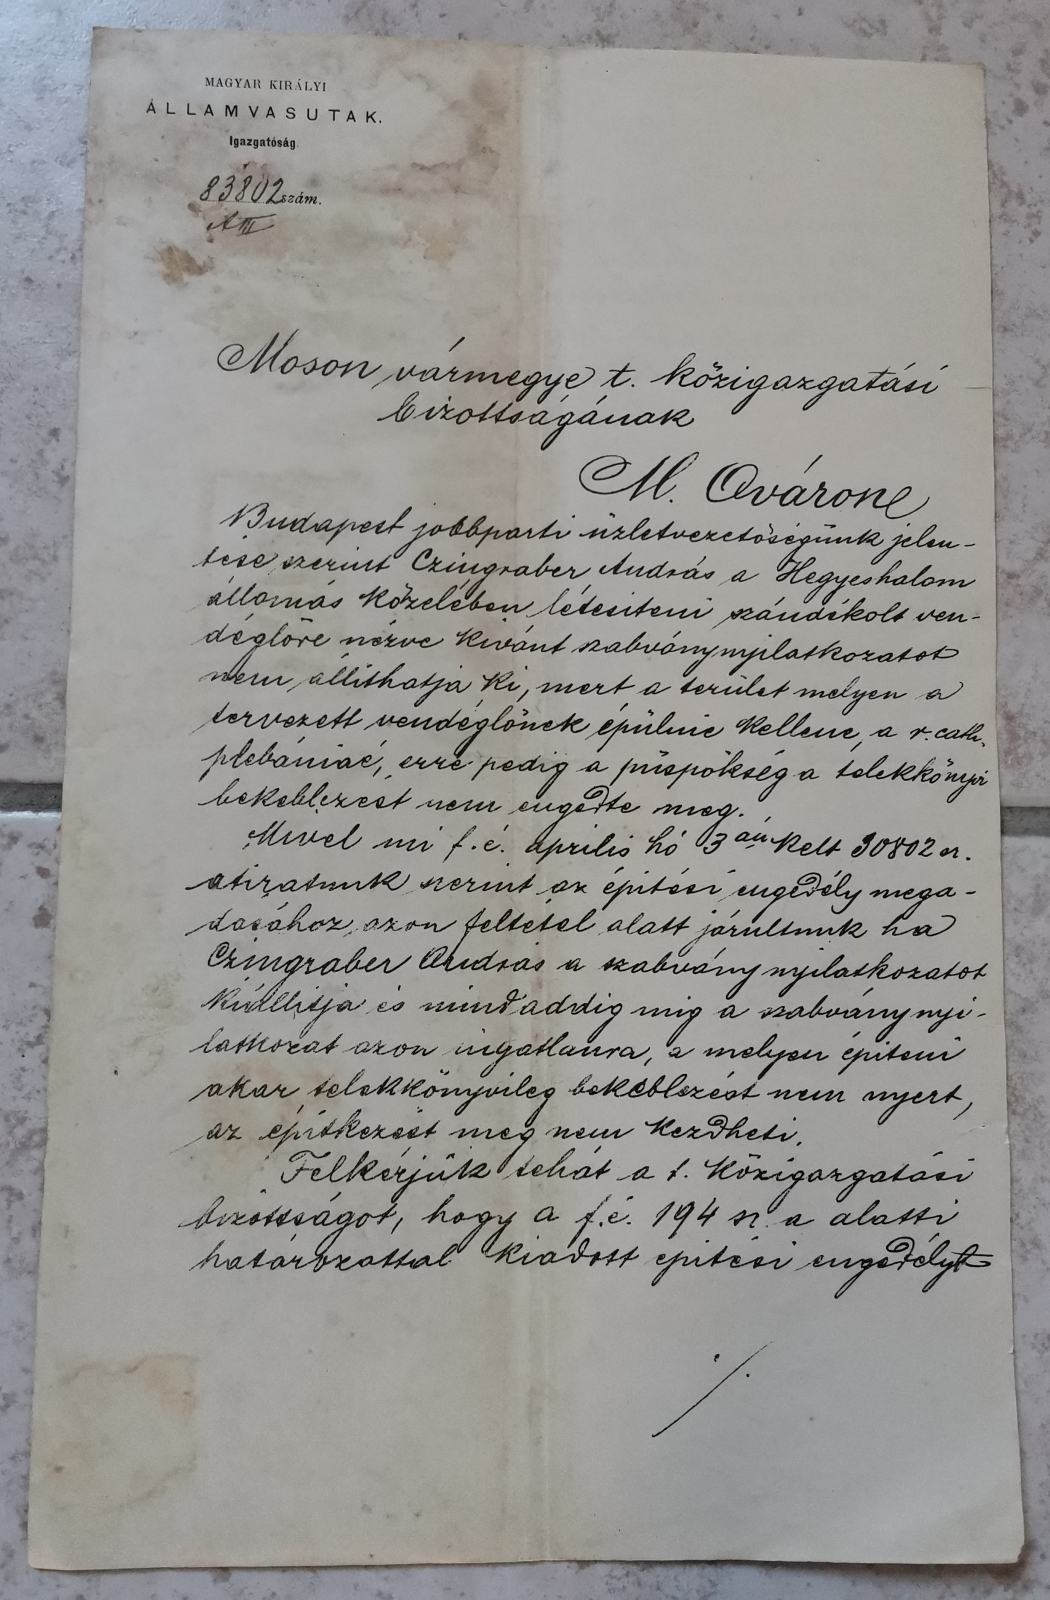 MAGYAR KIRÁLYI
ÁLLAMVASUTAK.
Igazgatóság
83802 szám.
A III
Moson vármegye t. közigazgatási
bizottságának
M. Óvárone
Budapest jobbparti üzletvezetőségünk jelen-
tése szerint Czingraber András a Hegyeshalom
állomás közelében létesiteni szándékolt ven-
déglőre nézve kivánt szabványnyilatkozatot
nem állithatja ki, mert a terület melyen a
tervezett vendéglőnek épülnie kellene, a r. cath.
plebániáé, erre pedig a püspökség a telekkönyvi
bekeblezést nem engedte meg.
Mivel mi f. é. április hó 3 án kelt 30802 sz.
átiratunk szerint az épitési engedély mega-
dásához azon feltétel alatt járultunk ha
Czingraber András a szabványnyilatkozatot
kiállitja és mindaddig mig a szabványnyi-
latkozat azon ingatlanra, a melyen épiteni
akar, telekkönyvileg bekeblezést nem nyert,
az épitkezést meg nem kezdheti.
Felkérjük tehát a t. közigazgatási
bizottságot, hogy a f. é. 194 sz. a alatti
határozattal kiadott épitési engedélyt
./.